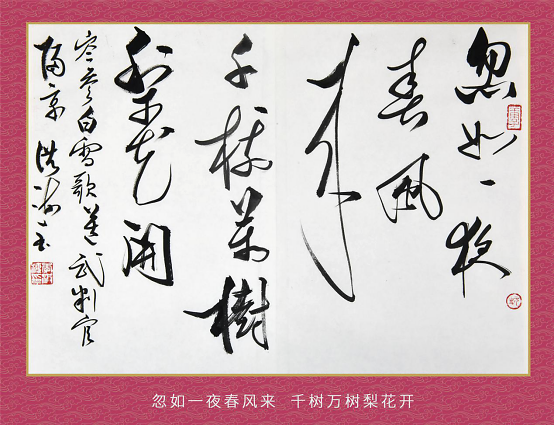 忽如一夜
春風
来
千树萬樹
梨花開
岑参白雪歌送武判官
忽如一夜春风来 千树万树梨花开